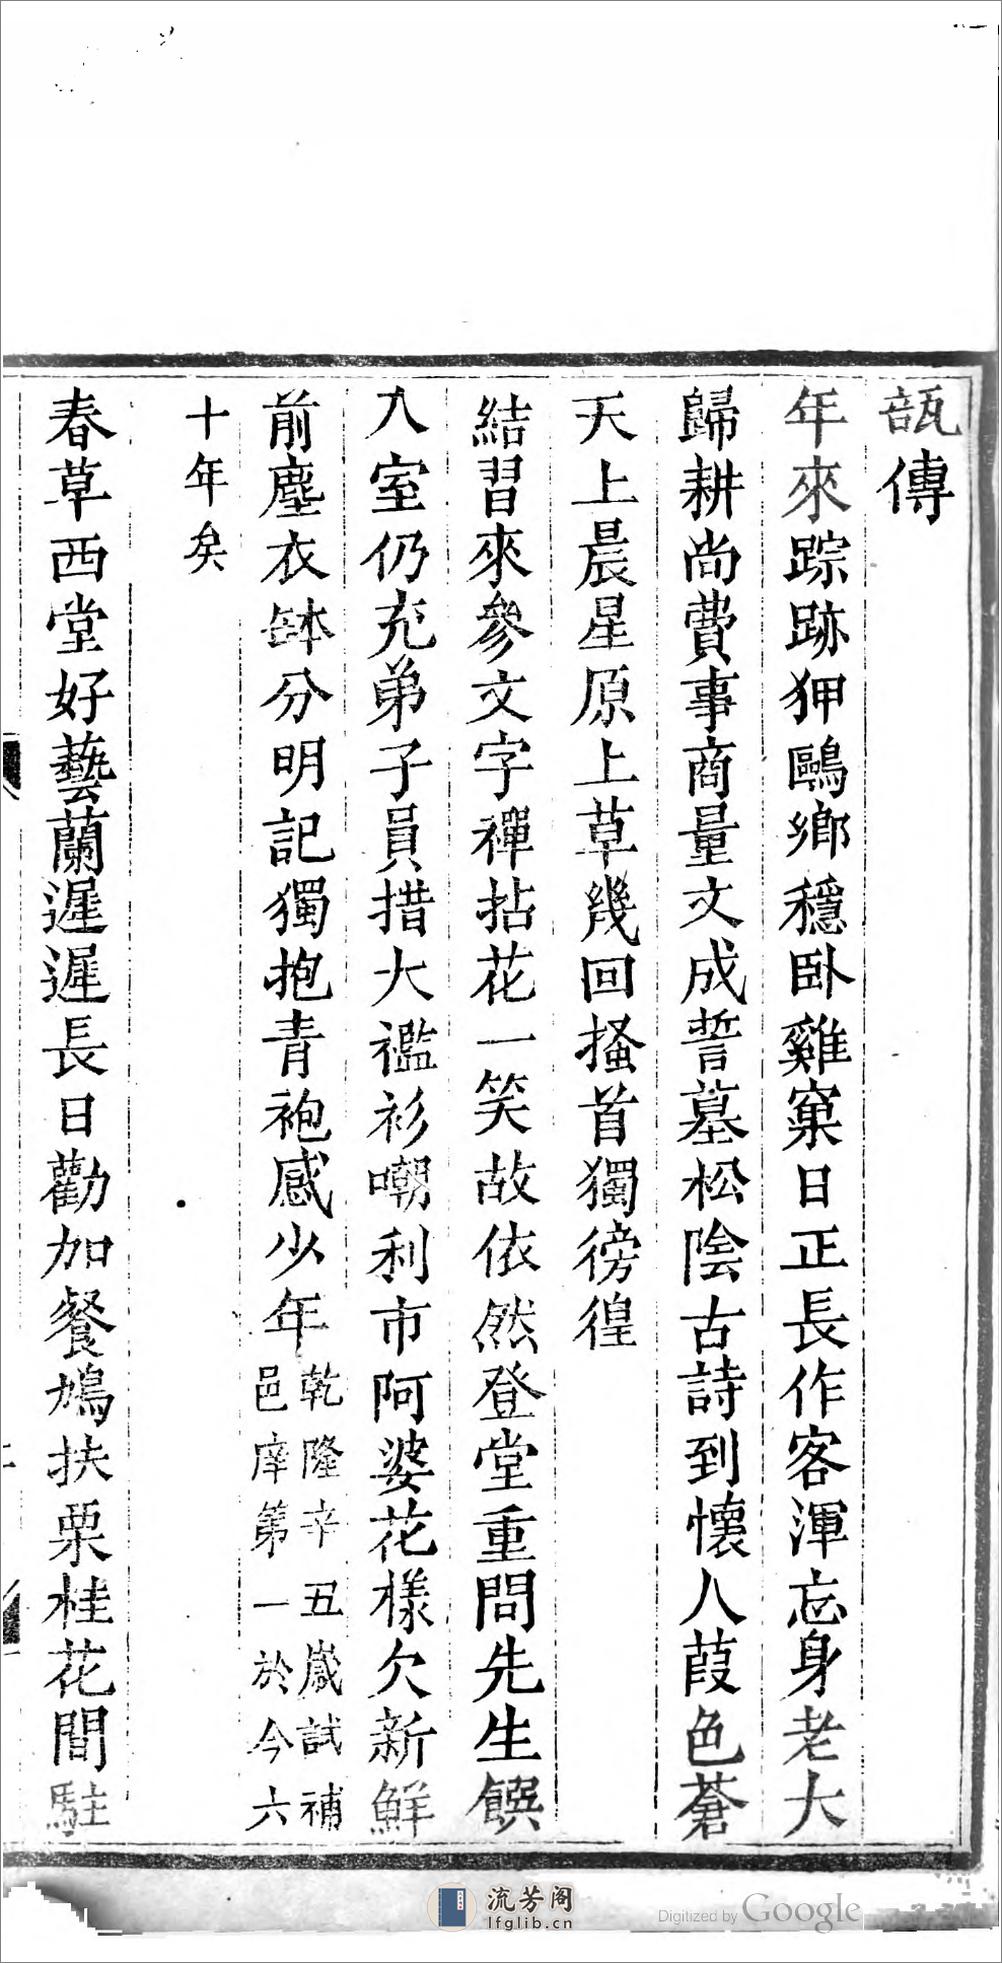 瓿傳
年來踪跡狎鷗鄉穩臥雞窠日正長作客渾忘身老大
歸耕尚費事商量文成誓墓松陰古詩到懷人葭色蒼
天上晨星原上草幾回搔首獨徬徨
結習來參文字禪拈花一笑故依然登堂重問先生饌
入室仍充弟子員措大襤衫嘲利市阿婆花樣欠新鮮
前塵衣缽分明記獨抱青袍感少年乾隆辛丑歲試補
邑庠第一於今六
十年矣
春草西堂好藝蘭遲遲長日勸加餐鳩扶栗桂花間駐
流芳阁
lfglib.cn
Digitized by Google